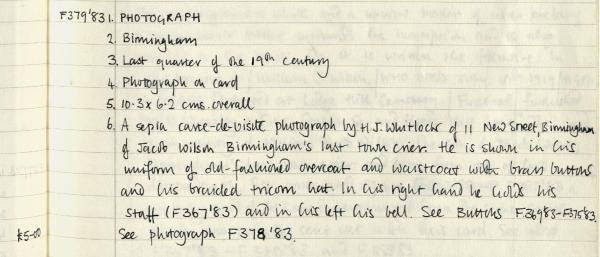 F379'83 1. PHOTOGRAPH
2. Birmingham
3. Last quarter of the 19th century
4. Photograph on card
5. 10.3 x 6.2 cms. overall
6. A sepia carte-de-visite photograph by H.J. Whitlock of 11 New Street, Birmingham
of Jacob Wilson Birmingham's last town crier. He is shown in his
uniform of old-fashioned overcoat and waistcoat with brass buttons
and his braided tricorn hat. In his right hand he holds his
staff (F367'83) and in his left his bell. See Buttons F369'83-F375'83.
£5-00 See photograph F378'83.